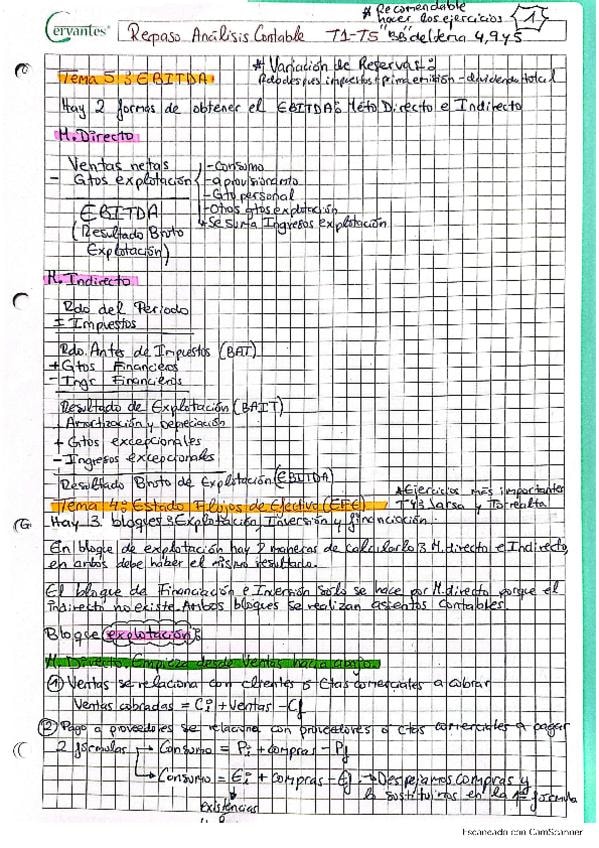 * Recomendable
hacer los ejercicios 1
Cervantes Repaso Análisis Contable T1-T5 "BB" del tema 4, 9 y 5
* Variación de Reservas:
Tema 5: EBITDA Rdo despues impuestos + prima emisión - dividendo total
Hay 2 formas de obtener el EBITDA: Méto Directo e Indirecto
M. Directo
Ventas netas - Consumo
- Gtos explotación - aprovisionamto
- Gto personal
EBITDA - Otros gtos explotación
(Resultado Bruto Se suma Ingresos explotación
Explotación)
M. Indirecto
Rdo del Periodo
± Impuestos
Rdo. Antes de Impuestos (BAT)
+ Gtos Financieros
- Ingr Financieros
Resultado de Explotación (BAIT)
+ Amortización y Depreciación
+ Gtos excepcionales
- Ingresos excepcionales
Resultado Bruto de Explotación (EBITDA)
Tema 4: Estado Flujos de Efectivo (EFE) * Ejercicios más importantes
Hay 3 bloques: Explotación, Inversión y financiación. T4:
En bloque de explotación hay 2 maneras de calcularlo: M. directo e Indirecto,
en ambos debe haber el mismo resultado.
El bloque de Financiación e Inversión solo se hace por M. directo porque el
indirecto no existe. Ambos bloques se realizan asientos contables.
Bloque explotación:
M. Directo. Empieza desde Ventas hacia abajo.
1 Ventas se relaciona con clientes o Ctas comerciales a cobrar
Ventas cobradas = Ci + Ventas - Cf
2 Pago a proveedores se relaciona con proveedores o ctas comerciales a pagar
2 formulas → Consumo = Pi + compras - Pf
→ Consumo = Ei + compras - Ef → Despejamos compras y
lo sustituimos en la 1ª formula
existencias
Escaneado con CamScanner